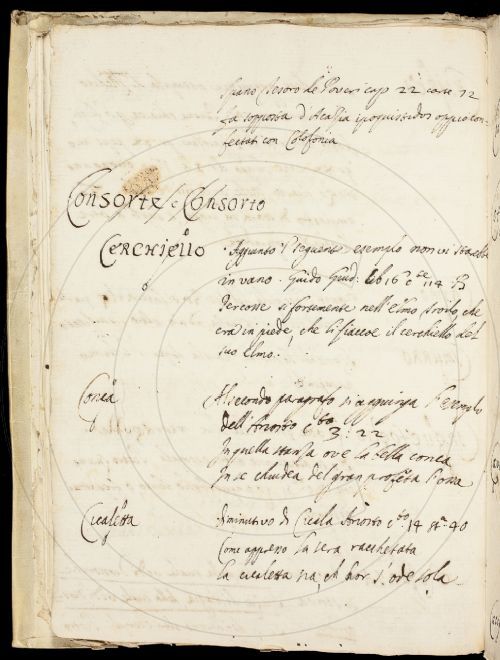 Tesoro de Poveri cap 22 carte 12
fa supposta d'Acassia ipoquistidos oppio con=
fectat con Colofonia
Consorte e Consorto
Cerchiello
Aggiunto l seguente esempio non vi starebbe
in vano. Guido Giud: lib 16 cte 114 B
Percosse si fortemente nell'elmo Troilo, che
era in piede, che li fiaccoe il cerchiello del
suo elmo.
Conca
Al secondo paragrafo si aggiunga l'esempio
dell'Ariosto Cto 3: 22
In quella stanza ove la bella conca
In se chiudea del gran profeta l'ossa
Cicaletta
diminutivo di Cicala Ariosto cto 14 sta. 40
Come appresso la sera racchetata
la cicaletta sia, ch' hor s'ode sola